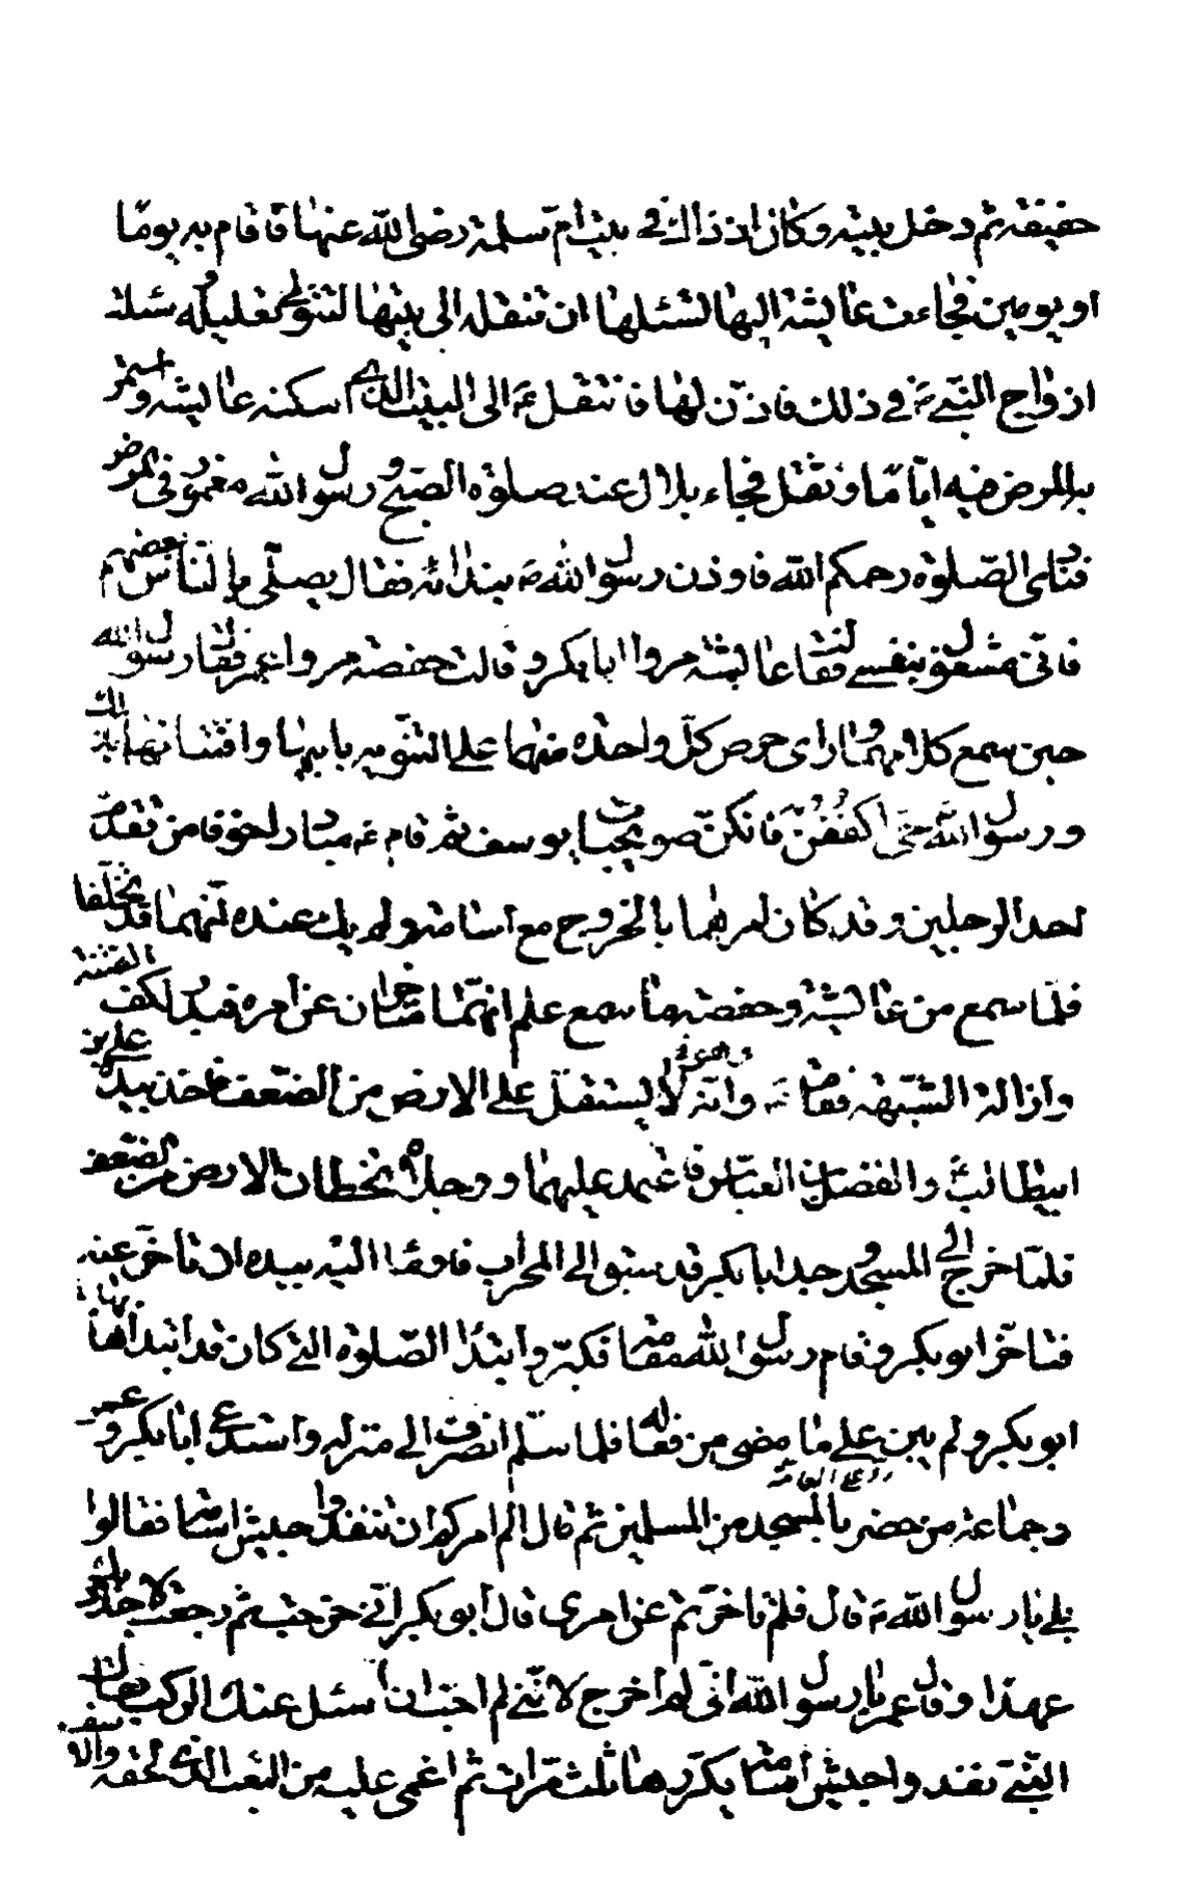 خفيفة ثم دخل بيته وكان اذ ذاك في بيت ام سلمة رضى الله عنها فاقام به يوما
او يومين فجاءت عايشة اليها لتسئلها ان تنقله الى بيتها لتتولى تعليله وسئلت
ازواج النبي ص في ذلك فاذن لها فانتقل ص الى البيت الذي اسكنه عايشه واستمر
به المرض فيه اياما وثقل فجاء بلال عند صلوة الصبح ورسول الله مغمور في المرض
فنادى الصلوة رحمكم الله فاوذن رسول الله ص بندائه فقال يصلي بالناس بعضهم
فاني مشغول بنفسي فقالت عايشة مروا ابا بكر وقالت حفصة مروا عمر فقال رسول الله
حين سمع كلامهما وراى حرص كل واحدة منهما على التنويه بابيها وافتتانهما بذلك
ورسول الله حي اكففن فانكن صويحبات يوسف ثم قام ص مبادرا خوفا من تقدم
احد الرجلين وقد كان امرهما بالخروج مع اسامة ولم يك عنده انهما قد تخلفا
فلما سمع من عايشة وحفصة ما سمع علم انهما متاخران عن امره فبدر لكف الفتنة
وازالة الشبهة فقام ص وانه لا يستقل على الارض من الضعف فاخذ بيده على بن
ابيطالب والفضل بن العباس فاعتمد عليهما ورجلاه يخطان الارض من الضعف
فلما خرج الى المسجد وجد ابا بكر قد سبق الى المحراب فاومئ اليه بيده ان تاخر عنه
فتاخر ابو بكر وقام رسول الله مقامه فكبر وابتدأ الصلوة التي كان قد ابتدأها
ابو بكر ولم يبن على ما مضى من فعاله فلما سلم انصرف الى منزله واستدعى ابا بكر وعمر
وجماعة من حضر بالمسجد من المسلمين ثم قال الم امركم ان تنفذوا جيش اسامة فقالوا
بلى يا رسول الله ص قال فلم تاخرتم عن امري قال ابو بكر اني خرجت ثم رجعت لاجدد بك
عهدا وقال عمر يا رسول الله اني لم اخرج لانني لم احب ان اسئل عنك الركب فقال
النبي نفذوا جيش اسامة يكررها ثلث مرات ثم اغمي عليه من التعب الذي لحقه والاسف